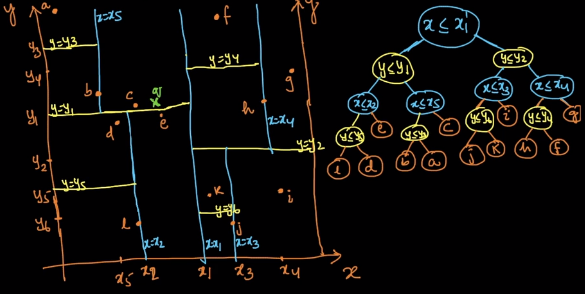 y a. f y
x=x5
y3 y=y3
y4 y=y4 g
b c q
y1 y=y1 d e h x=x4
y2 y=y2
y5 y=y5 k i
y6 y=y6
l x=x2 x=x1 j x=x3
x5 x2 x1 x3 x4 x
x≤x1
y≤y1 y≤y2
x≤x2 x≤x5 x≤x3 x≤x4
y≤y5 e c y≤y6 i y≤y4 g
l d b a j k h f